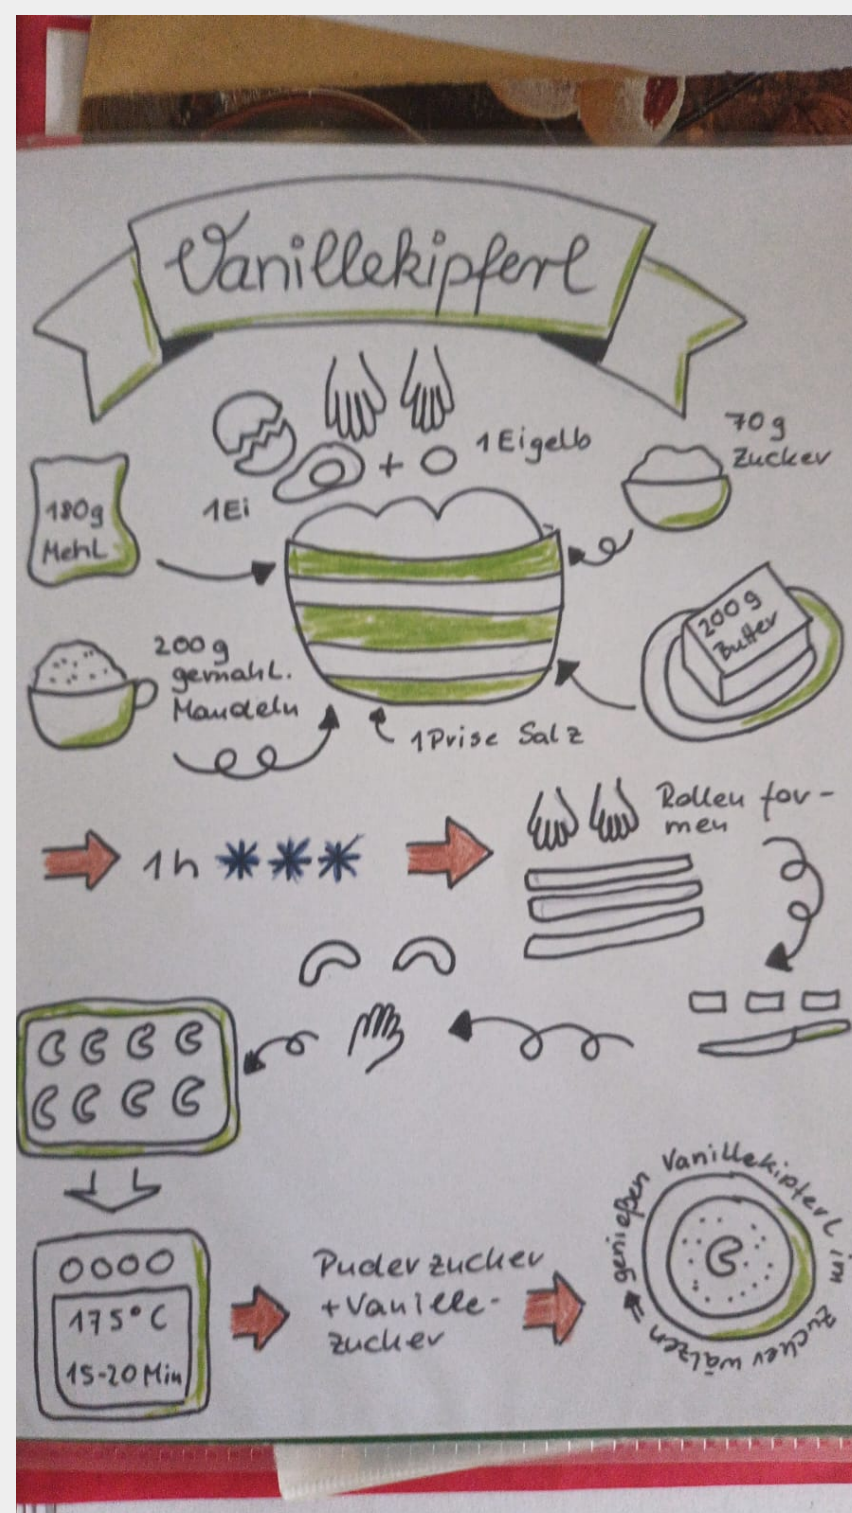 Vanillekipferl
1 Eigelb
70g
Zucker
1Ei
180g
Mehl
200g
Butter
200g
gemahl.
Mandeln
1 Prise Salz
1h
Rollen for-
men
175°C
15-20 Min
Puderzucker
+Vanille-
zucker
Vanillekipferl im Zucker wälzen genießen